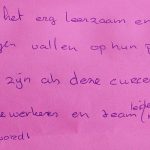 het erg leerzaam en
gen vallen op hun p
zijn als deze curs
ewerkers en team leide
wordt